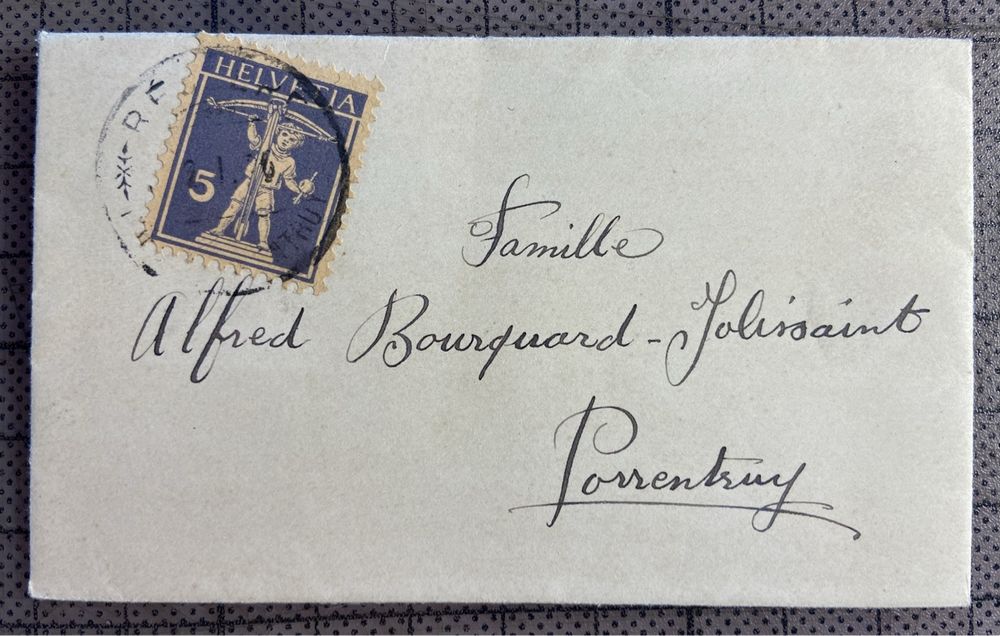 HELVETIA
5
Famille
Alfred Bourquard-Jolissaint
Porrentruy